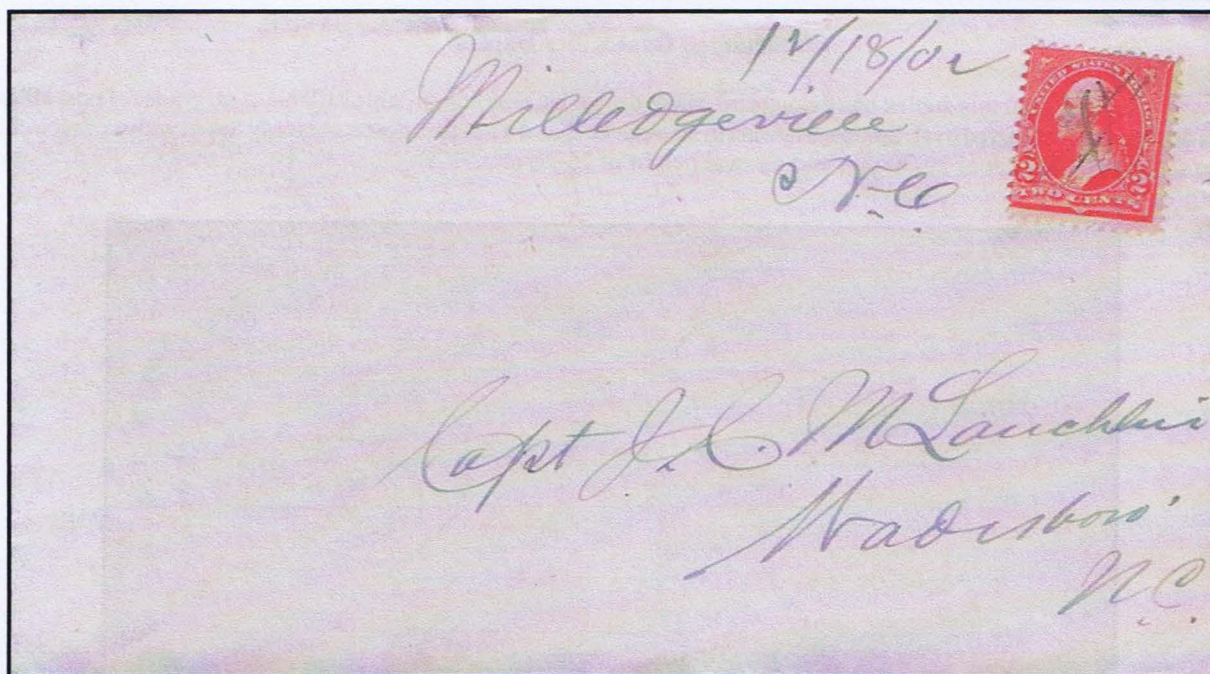 12/18/02
Milledgeville
N.C
UNITED STATES POSTAGE
2 2
TWO CENTS
Capt J. C. McLauchlin
Wadesboro'
N.C.